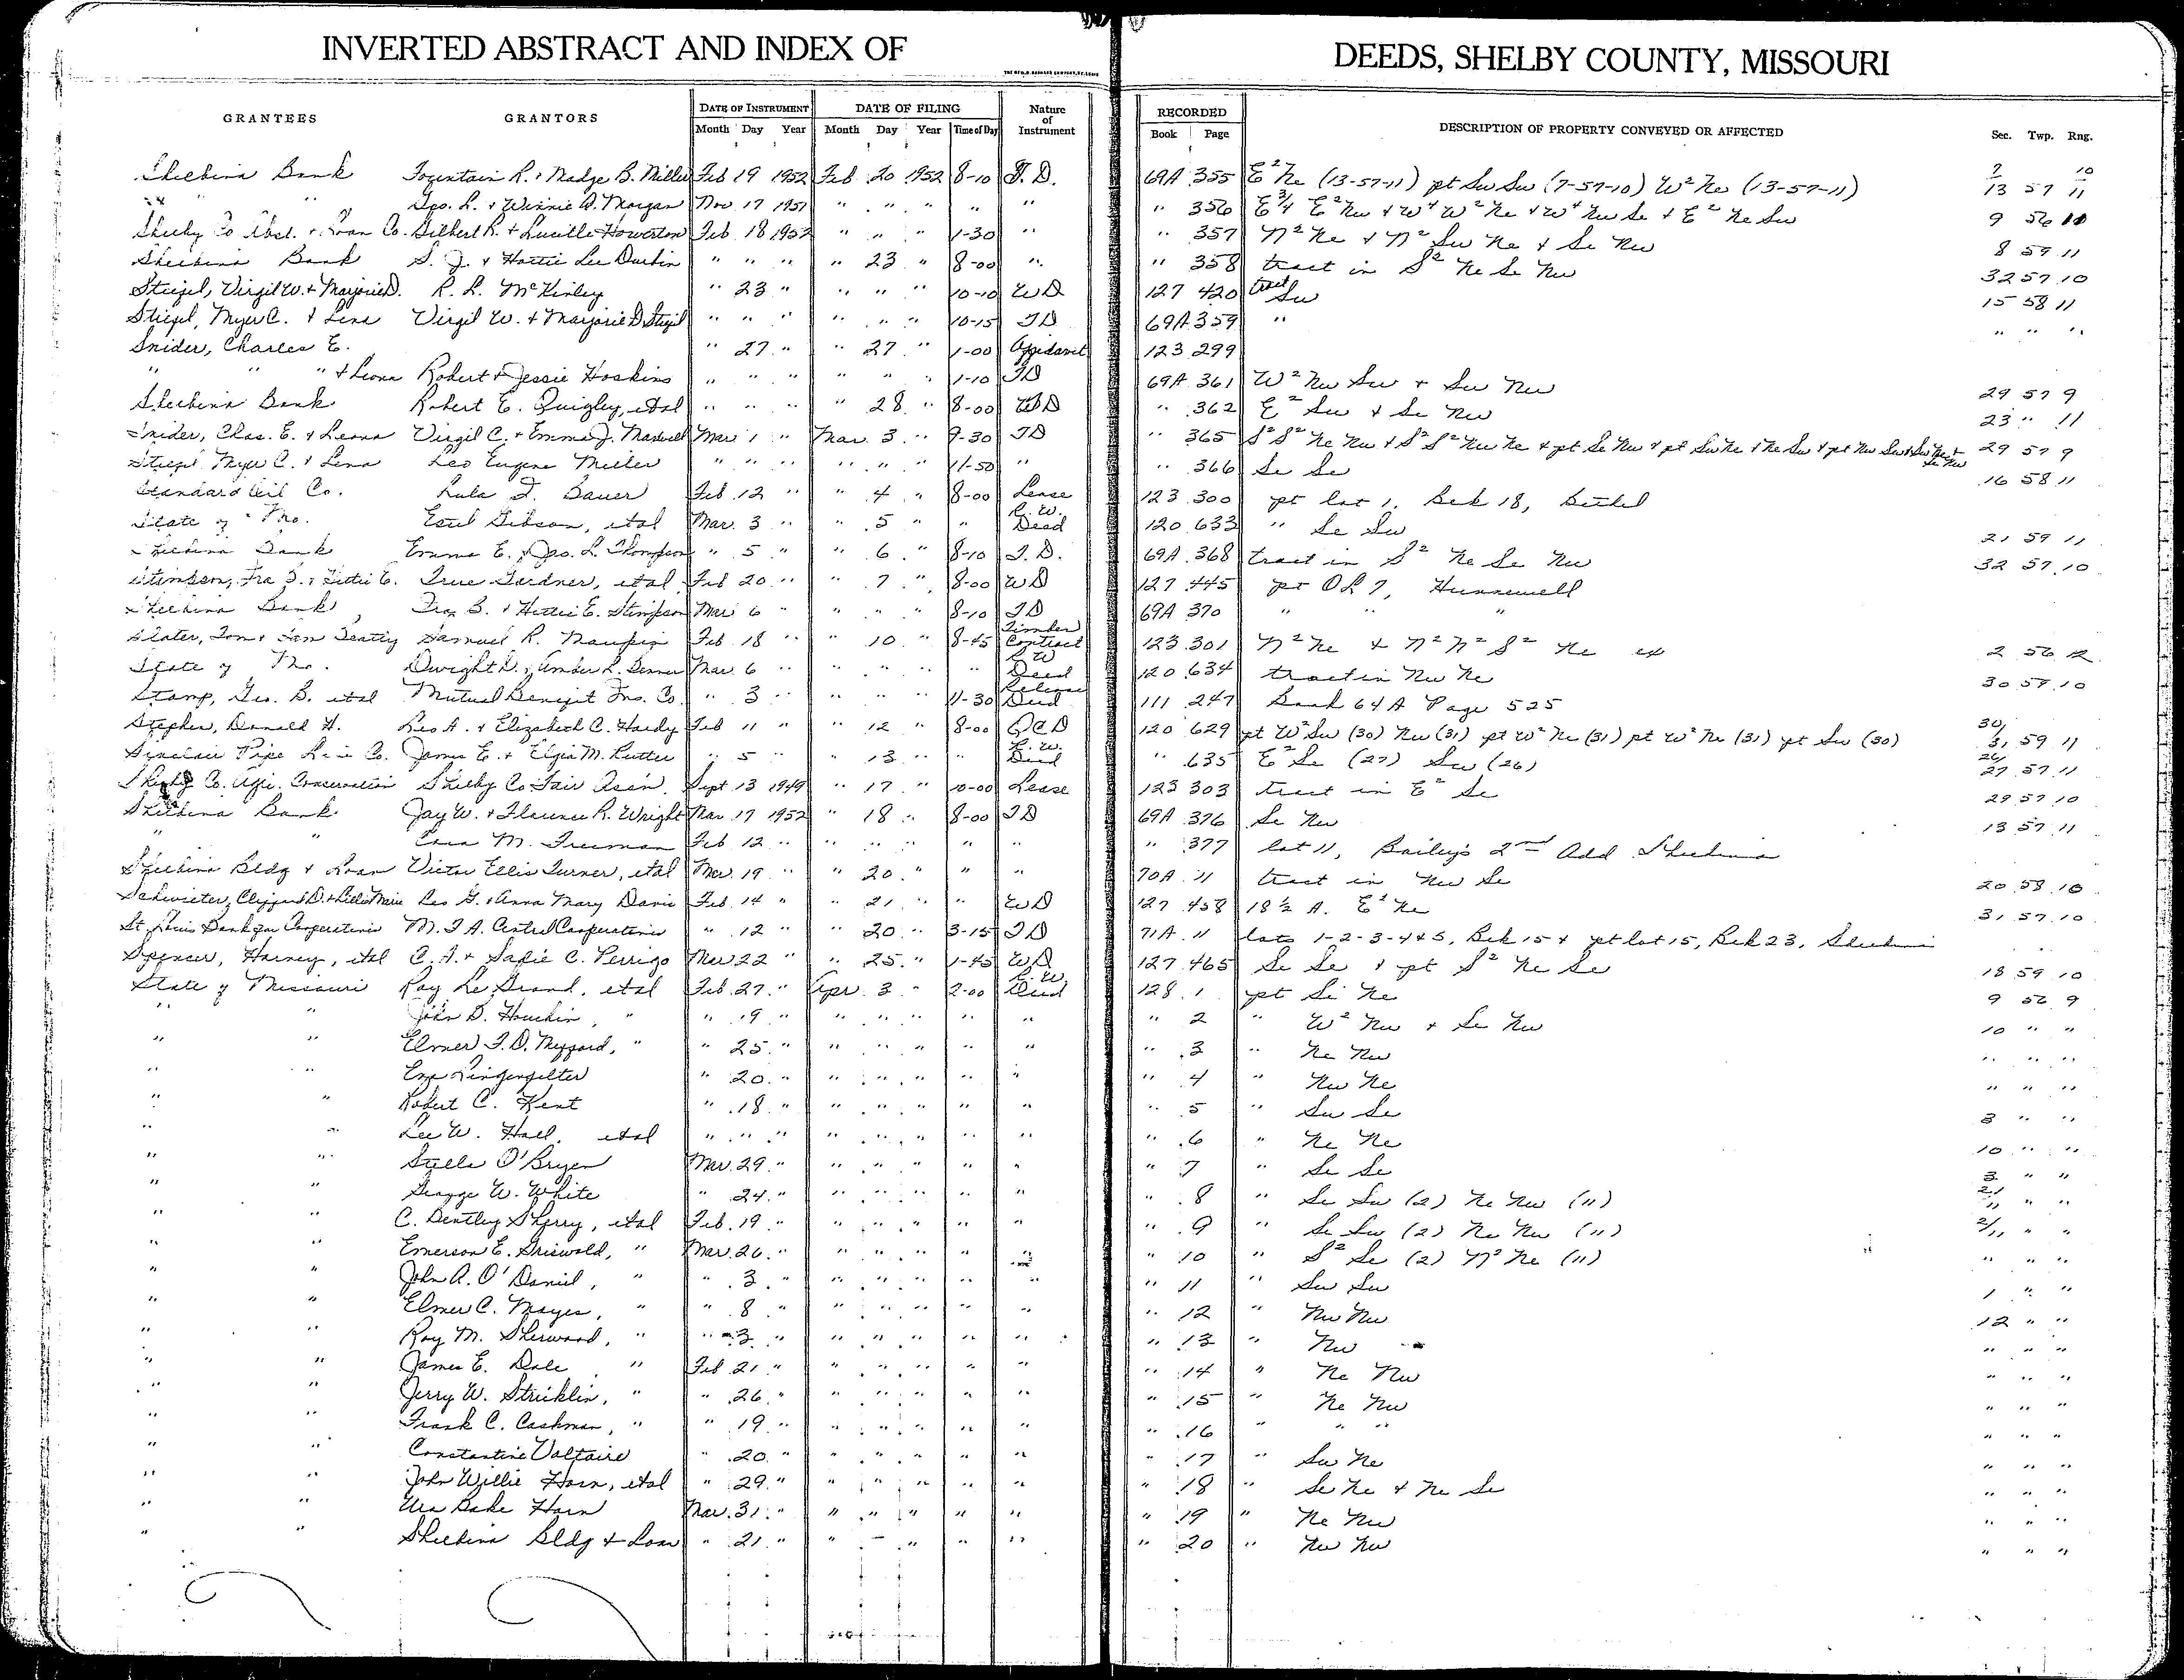 INVERTED ABSTRACT AND INDEX OF DEEDS, SHELBY COUNTY, MISSOURI
GRANTEES GRANTORS DATE OF INSTRUMENT DATE OF FILING Nature of Instrument RECORDED DESCRIPTION OF PROPERTY CONVEYED OR AFFECTED Sec. Twp. Rng.
Month Day Year Month Day Year Time of Day Book Page
Shelbina Bank Fountain R. & Madge B. Miller Feb 19 1952 Feb 20 1952 8-10 T.D. 69A 355 E² Ne (13-57-11) pt Sw Sw (7-57-10) W² Ne (13-57-11) 7 10 13 57 11
" " Geo. L. & Winnie A. Morgan Nov. 17 1951 " " " " " " 356 E¾ E² Nw & W⁴ W² Ne & W⁴ Nw Se & E² Ne Sw 9 56 10
Shelby Co Abst. & Loan Co. Gilbert R. & Lucille Howerton Feb. 18 1952 " " " 1-30 " " 357 N² Ne & N² Sw Ne & Se Nw 8 59 11
Shelbina Bank S. J. & Hattie Lee Durbin " " " " 23 " 8-00 " " 358 tract in S² Ne Se Nw 32 57 10
Stiegel, Virgil W. & Marjorie D. R. L. McKinley " 23 " " " " 10-10 WD 127 420 tract Sw 15 58 11
Stiegel, Myer C. & Lena Virgil W. & Marjorie D. Stiegel " " " " " " 10-15 TD 69A 359 " " " "
Snider, Charles E. " 27 " " 27 " 1-00 Affidavit 123 299
" " " & Leona Robert & Jessie Hoskins " " " " " " 1-10 TD 69A 361 W² Nw Sw & Sw Nw 29 57 9
Shelbina Bank Robert E. Quigley, etal " " " " 28 " 8-00 WD " 362 E² Sw & Se Nw 23 " 11
Snider, Chas. E. & Leona Virgil C. & Emma J. Maxwell Mar 1 " Mar. 3 " 9-30 TD " 365 S² S² Ne Nw & S² S² Nw Ne & pt Se Nw & pt Sw Ne & Ne Sw & pt Nw Se 29 57 9
Stiegel Myer C. & Lena Leo Eugene Miller " " " " " " 11-50 " " 366 Se Se 16 58 11
Standard Oil Co. Lula F. Bauer Feb. 12 " " 4 " 8-00 Lease 123 300 pt lot 1, Bek 18, Bethel
State of Mo. Estil Gibson, etal Mar. 3 " " 5 " " R.W. Deed 120 633 " Se Sw 21 59 11
Shelbina Bank Emma E. & Geo. L. Thompson " 5 " " 6 " 8-10 T.D. 69A 368 tract in S² Ne Se Nw 32 57 10
Stimpson, Ira B. & Hettie E. True Gardner, etal Feb 20 " " 7 " 8-00 WD 127 445 pt OL 7, Hunnewell
Shelbina Bank Ira B. & Hettie E. Stimpson Mar 6 " " " " 8-10 TD 69A 370 " " "
Slater, Tom & Sam Beatty Samuel R. Maupin Feb. 18 " " 10 " 8-45 Timber Contract 123 301 N² Ne & N² N² S² Ne ex 2 56 12
State of Mo. Dwight D. & Amber L. Mar. 6 " " " " " R W Deed 120 634 tract in Nw Ne 30 57 10
Stamp, Geo. B. etal Mutual Benefit Ins. Co. " 3 " " " " 11-30 Release Deed 111 247 Book 64A Page 525
Stephen, Donald H. Leo A. & Elizabeth C. Hardy Feb 11 " " 12 " 8-00 QCD 120 629 pt W² Sw (30) Nw (31) pt W² Ne (31) pt W² Ne (31) pt Sw (30) 30/31 59 11
Sinclair Pipe Line Co. James E. & Elgia M. Rutter " 5 " " 13 " " R.W. Deed " 635 E² Se (27) Sw (26) 26/27 57 11
Shelby Co. Agri. Conservation Shelby Co Fair Assn. Sept. 13 1949 " 17 " 10-00 Lease 123 303 tract in E² Se 29 57 10
Shelbina Bank Jay W. & Florence R. Wright Mar. 17 1952 " 18 " 8-00 TD 69A 376 Se Nw 13 57 11
" " Cora M. Freeman Feb. 12 " " " " " " " 377 lot 11, Bailey's 2nd Add Shelbina
Shelbina Bldg & Loan Victor Ellis Turner, etal Mar. 19 " " 20 " " " 70A 11 tract in Nw Se 20 58 10
Schwieter, Clifford D. & Lillie Marie Leo G. & Anna Mary Davis Feb. 14 " " 21 " " WD 127 458 18½ A. E² Ne 31 57 10
St. Louis Bank for Cooperatives M.F.A. Central Cooperative " 12 " " 20 " 3-15 TD 71A 11 lots 1-2-3-4&5, Bek 15 & pt lot 15, Bek 23, Shelbina
Spencer, Harvey, etal C. A. & Sadie C. Perrigo Mar 22 " " 25 " 1-45 WD 127 465 Se Se & pt S² Ne Se 18 59 10
State of Missouri Ray Le Grand, etal Feb. 27 " Apr. 3 " 2-00 R.W. Deed 128 1 pt Se Ne 9 56 9
" " John D. Houchin, " " 19 " " " " " " " 2 " W² Nw & Se Nw 10 " "
" " Elmer F. D. " " 25 " " " " " " " 3 " Ne Nw " " "
" " Lingenfelter " 20 " " " " " " " 4 " Nw Ne " " "
" " Robert C. Kent " 18 " " " " " " " 5 " Sw Se 3 " "
" " Lee W. Hall, etal " " " " " " " " " 6 " Ne Ne 10 " "
" " Stella O'Bryen Mar. 29 " " " " " " " 7 " Se Se 3 " "
" " George W. White " 24 " " " " " " " 8 " Se Sw (2) Ne Nw (11) 2/11 " "
" " C. Bentley Sherry, etal Feb. 19 " " " " " " " 9 " Se Sw (2) Ne Nw (11) 2/11 " "
" " Emerson E. Griswold, " Mar. 26 " " " " " " " 10 " S² Se (2) N² Ne (11) " " "
" " John A. O'Daniel, " " 3 " " " " " " " 11 " Sw Sw 1 " "
" " Elmer C. Mayes, " " 8 " " " " " " " 12 " Nw Nw 12 " "
" " Roy M. Sherwood, " " 3 " " " " " " " 13 " Nw " " "
" " James E. Dale " Feb 21 " " " " " " " 14 " Ne Nw " " "
" " Jerry W. Stricklin, " " 26 " " " " " " " 15 " Ne Nw " " "
" " Frank C. Cashman, " " 19 " " " " " " " 16 " " " " " "
" " Constantine Voltaire " 20 " " " " " " " 17 " Sw Ne " " "
" " John Willie Horn, etal " 29 " " " " " " " 18 " Se Ne & Ne Se " " "
" " Ura Dake Horn Mar. 31 " " " " " " " 19 " Ne Nw " " "
" " Shelbina Bldg & Loan " 21 " " " " " " " 20 " Nw Nw " " "